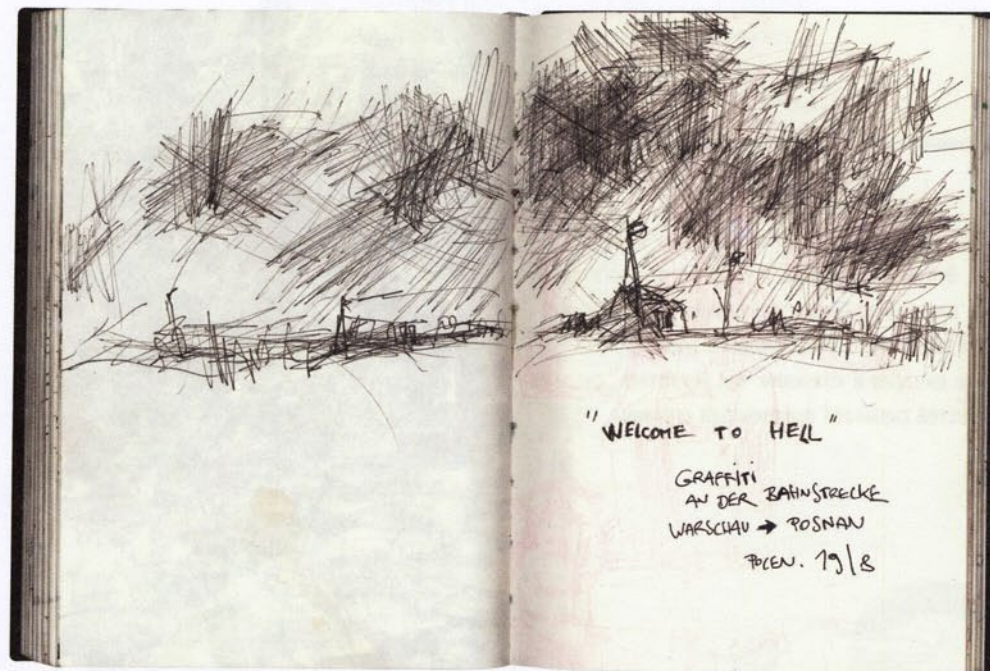 "WELCOME TO HELL"
GRAFFITI
AN DER BAHNSTRECKE
WARSCHAU → POSNAN
POLEN. 19/8